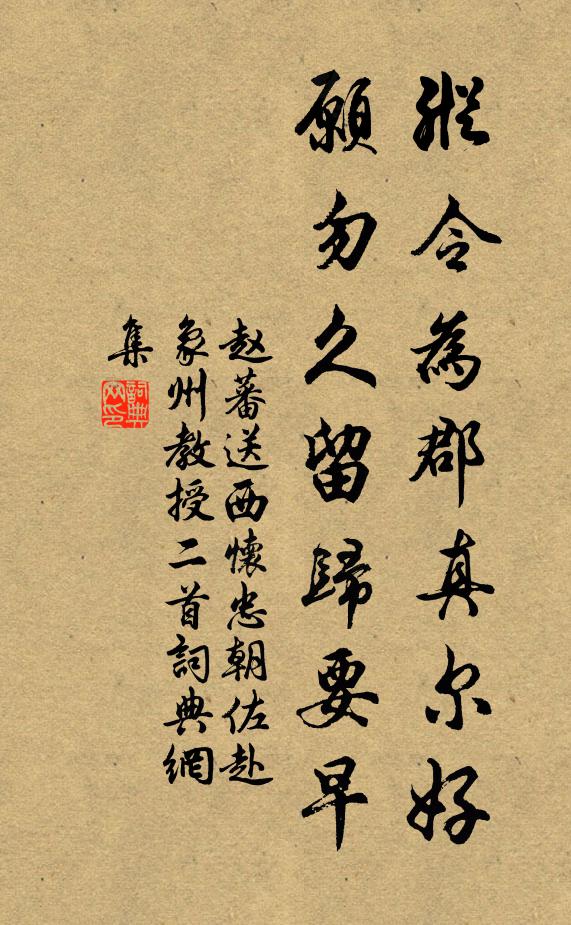 縱令為郡真尔好
願勿久留歸要早
赵蕃送西懷忠朝佐赴
象州教授二首詞典網
集
詞典
网印